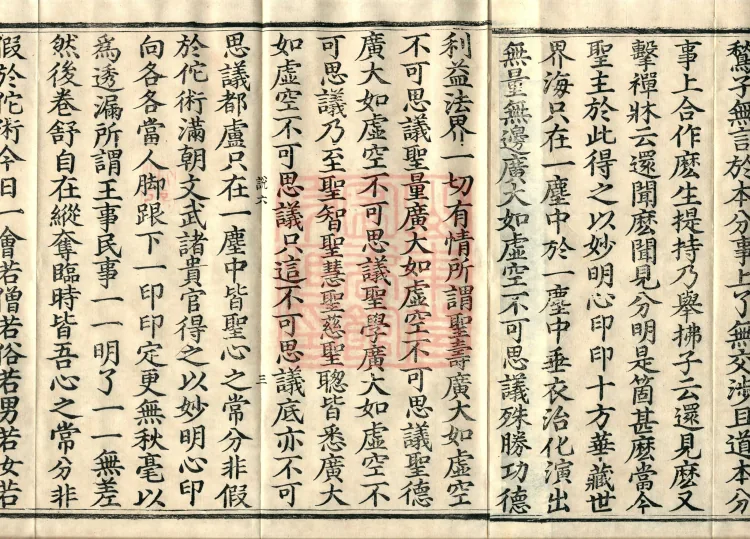 鶖子無言於本分事上了無交涉且道本分
事上合作麽生提持乃舉拂子云還見麽又
擊禪牀云還聞麽聞見分明是箇甚麽當今
聖主於此得之以妙明心印印十方華藏世
界海只在一塵中於一塵中垂衣治化演出
無量無邊廣大如虛空不可思議殊勝功德
利益法界一切有情所謂聖壽廣大如虛空
不可思議聖量廣大如虛空不可思議聖德
廣大如虛空不可思議聖學廣大如虛空不
可思議乃至聖智聖慧聖慈聖聦皆悉廣大
如虛空不可思議只這不可思議底亦不可
說六 三
思議都盧只在一塵中皆聖心之常分非假
於佗術滿朝文武諸貴官得之以妙明心印
向各各當人脚跟下一印印定更無秋毫以
爲透漏所謂王事民事一一明了一一無差
然後卷舒自在縱奪臨時皆吾心之常分非
假於佗術今日一會若僧若俗若男若女若